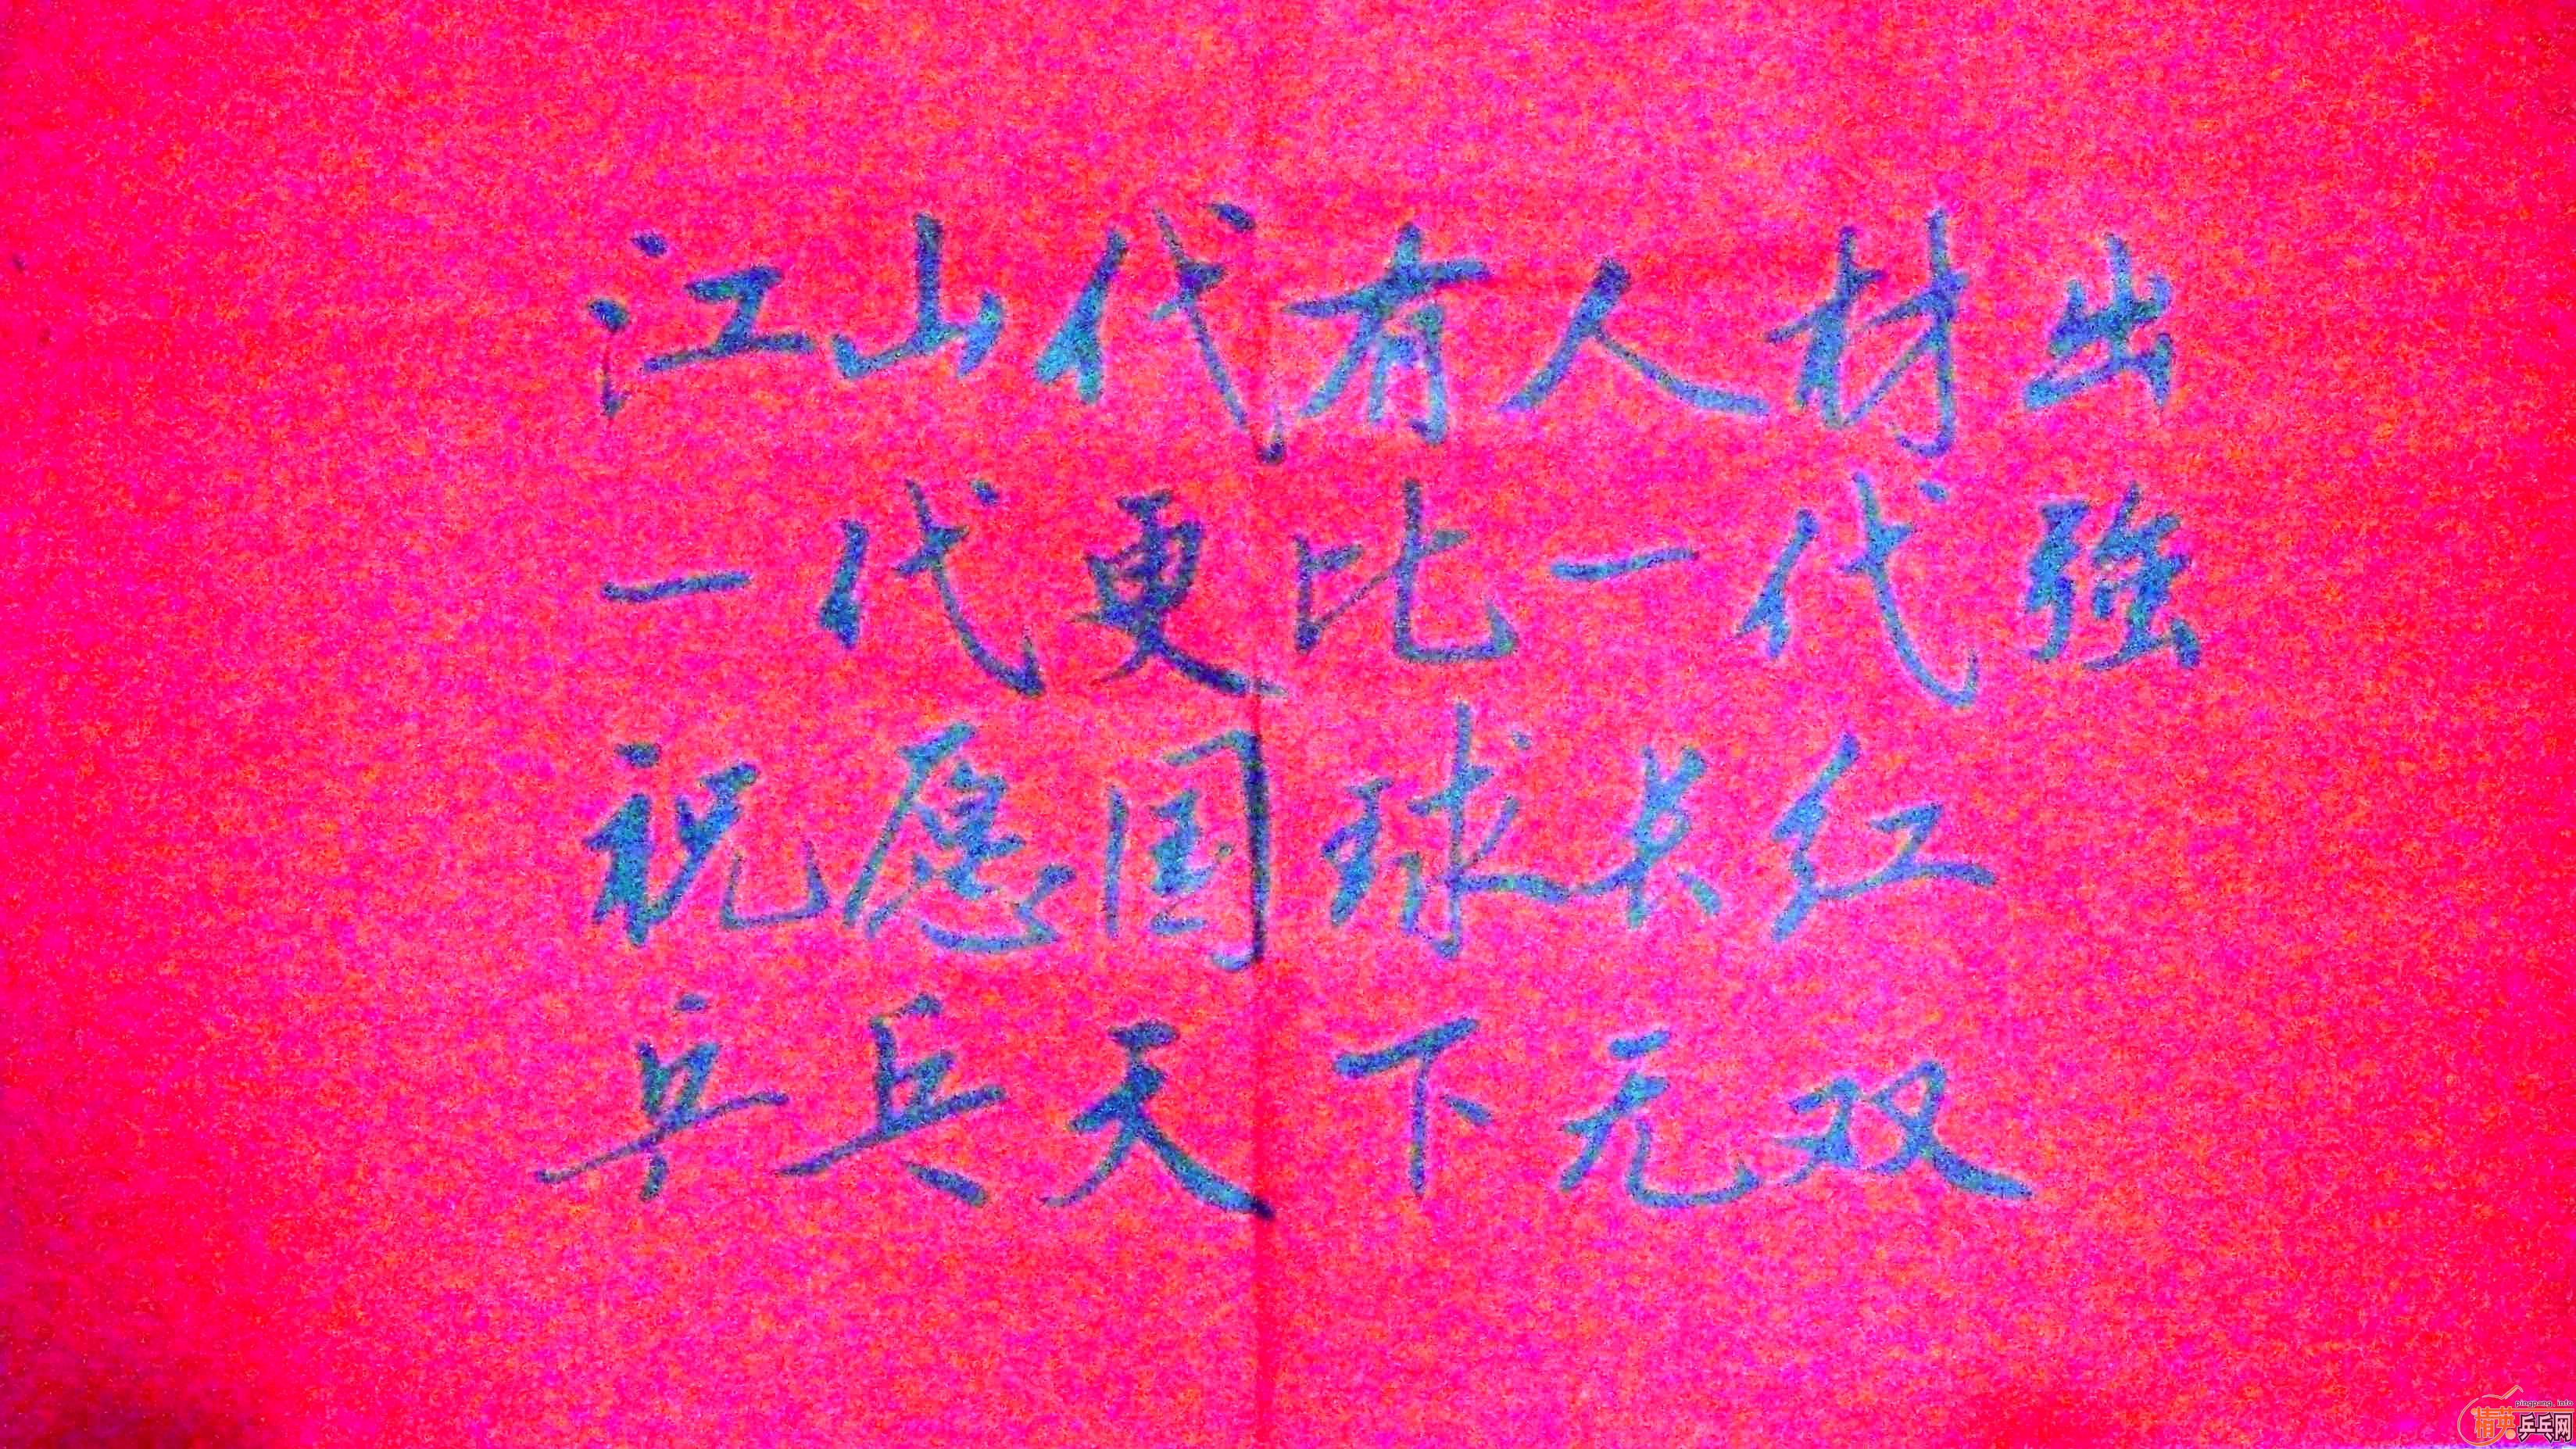 江山代有人材出
一代更比一代強
祝愿国球长红
乒乓天下无双
pingpang.info
精英乒乓网